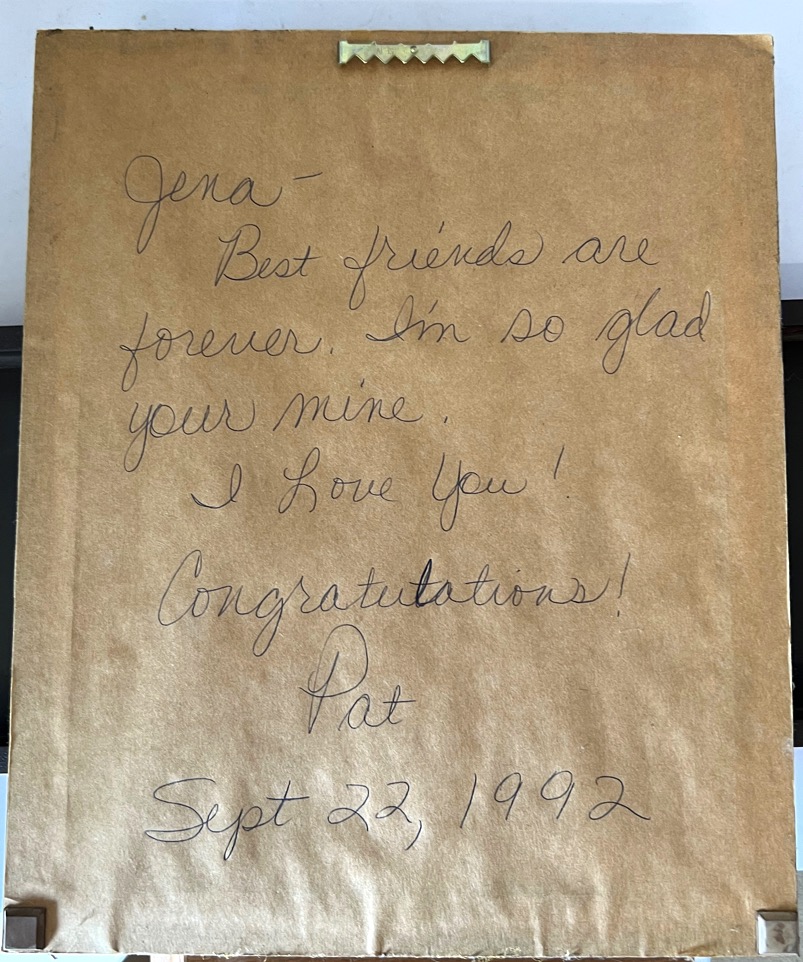 Jena-
Best friends are
forever. I'm so glad
your mine.
I Love You!
Congratulations!
Pat
Sept 22, 1992